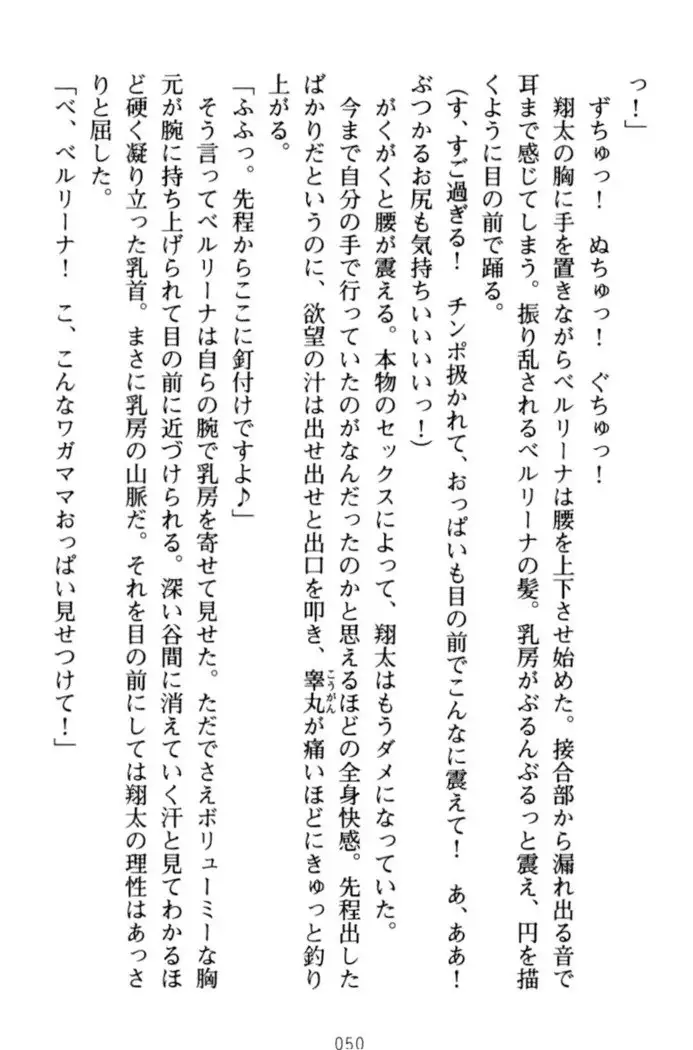 っ！」
　ずちゅっ！　ぬちゅっ！　ぐちゅっ！
　翔太の胸に手を置きながらベルリーナは腰を上下させ始めた。接合部から漏れ出る音で
耳まで感じてしまう。振り乱されるベルリーナの髪。乳房がぶるんぶるっと震え、円を描
くように目の前で踊る。
（す、すご過ぎる！　チンポ扱かれて、おっぱいも目の前でこんなに震えて！　あ、ああ！
ぶつかるお尻も気持ちいいいいっ！）
　がくがくと腰が震える。本物のセックスによって、翔太はもうダメになっていた。
　今まで自分の手で行っていたのがなんだったのかと思えるほどの全身快感。先程出した
ばかりだというのに、欲望の汁は出せ出せと出口を叩き、睾丸こうがんが痛いほどにきゅっと釣り
上がる。
「ふふっ。先程からここに釘付けですよ♪」
　そう言ってベルリーナは自らの腕で乳房を寄せて見せた。ただでさえボリューミーな胸
元が腕に持ち上げられて目の前に近づけられる。深い谷間に消えていく汗と見てわかるほ
ど硬く凝り立った乳首。まさに乳房の山脈だ。それを目の前にしては翔太の理性はあっさ
りと屈した。
「べ、ベルリーナ！　こ、こんなワガママおっぱい見せつけて！」
050